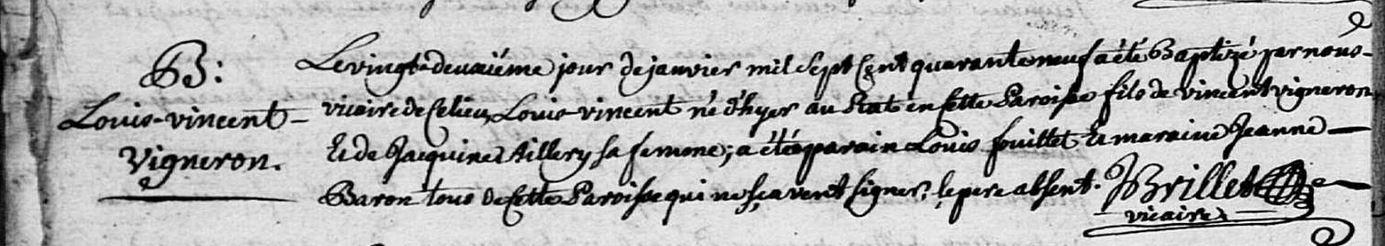 B:
Louis-vincent
Vigneron.
Le vingt-deuxiéme jour de janvier mil sept Cent quarante neuf a été Baptizé par nous
vicaire de Celieu, Louis vincent né d'hyer au Plat en Cette Paroisse fils de vincent vigneron
Et de Jacquine Aillery sa femme; a été parain Louis fouillet Et maraine Jeanne
Baron tous de Cette Paroisse qui ne sçavent signer; le pere absent. JBrillet
vicaire